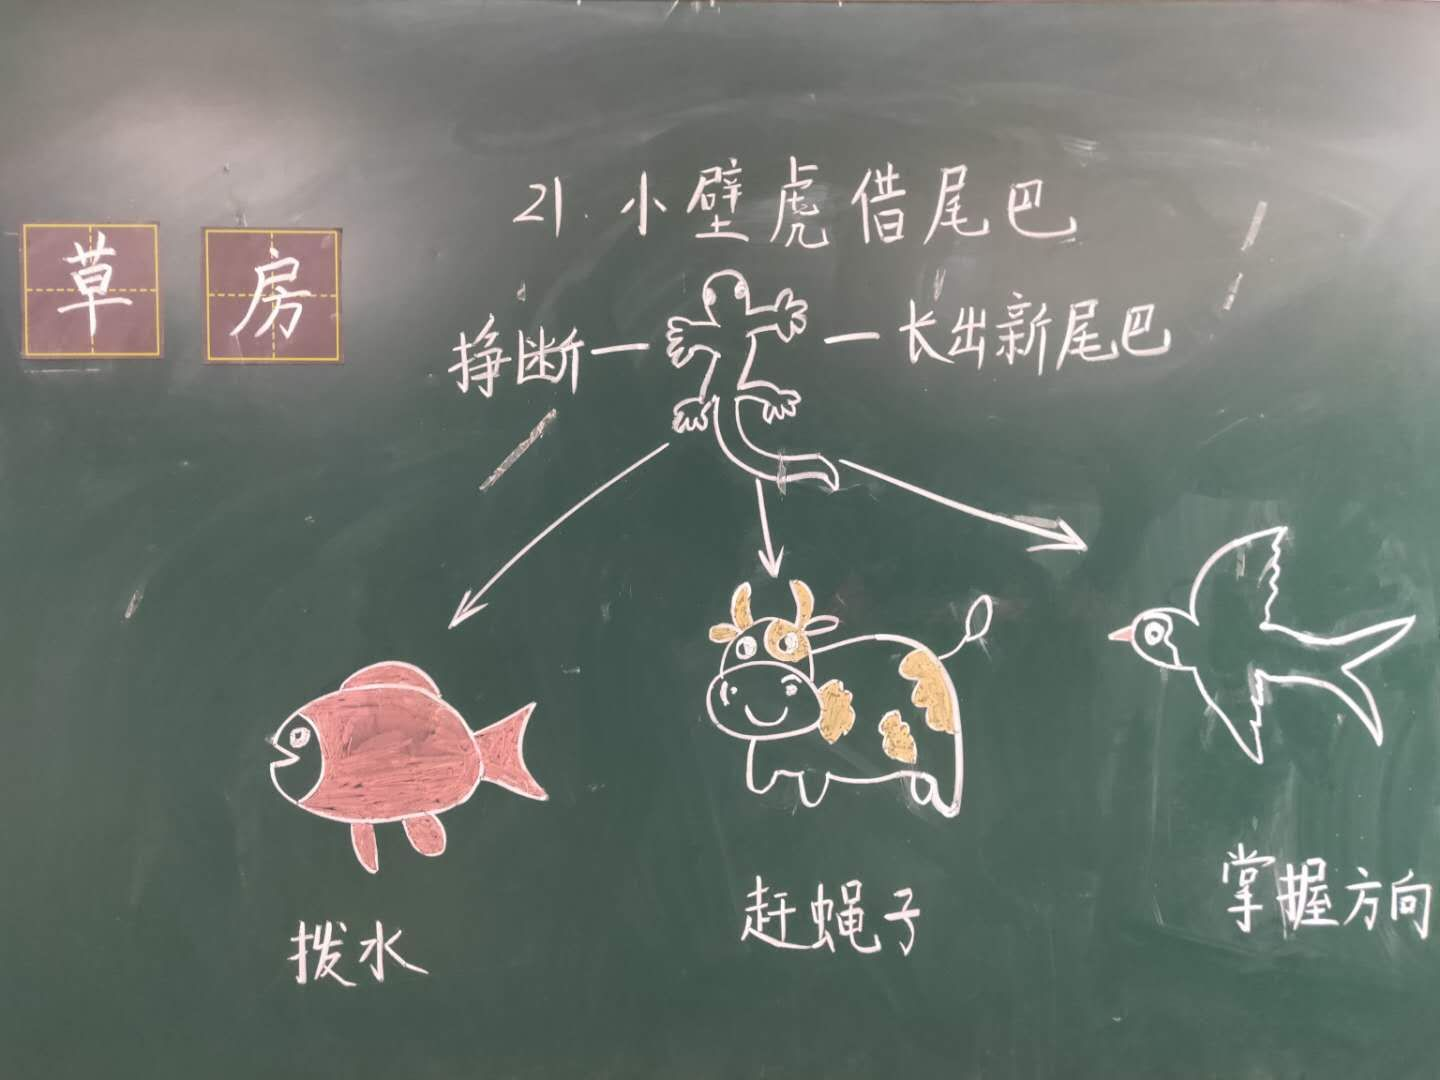 21. 小壁虎借尾巴
草 房
挣断 — — 长出新尾巴
拨水
赶蝇子
掌握方向